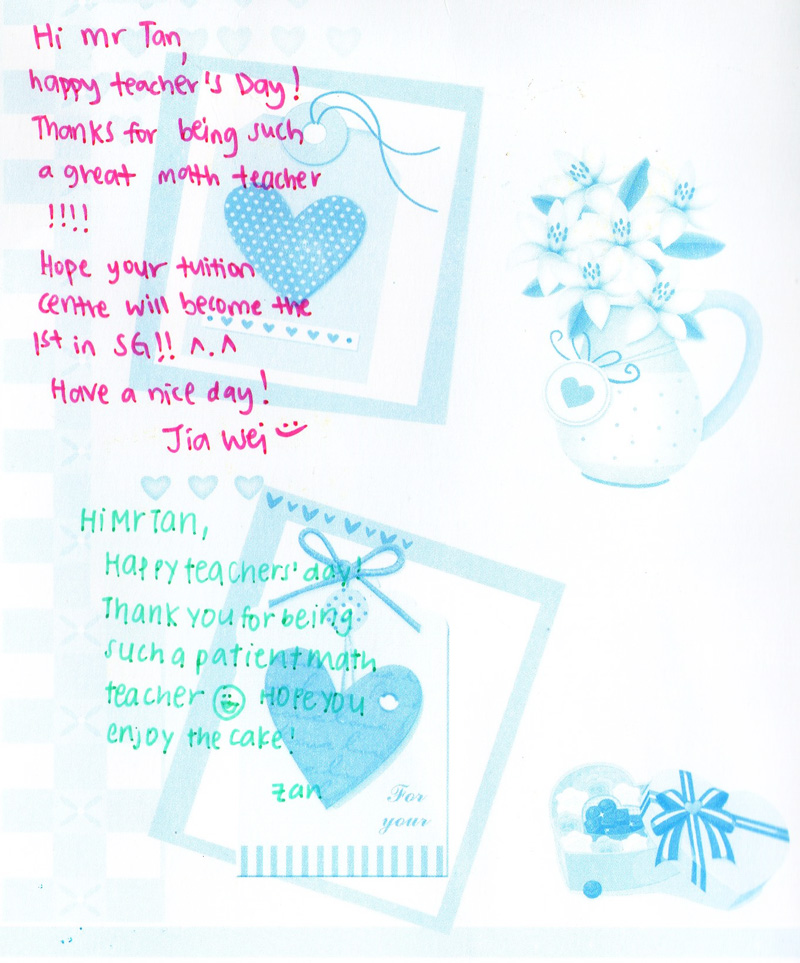 Hi mr Tan,
happy teacher's Day!
Thanks for being such
a great math teacher
!!!!
Hope your tuition
centre will become the
1st in SG!! ^.^
Have a nice day!
Jia Wei
Hi Mr Tan,
Happy teachers' day!
Thank you for being
such a patient math
teacher Hope you
enjoy the cake!
zan
For
your